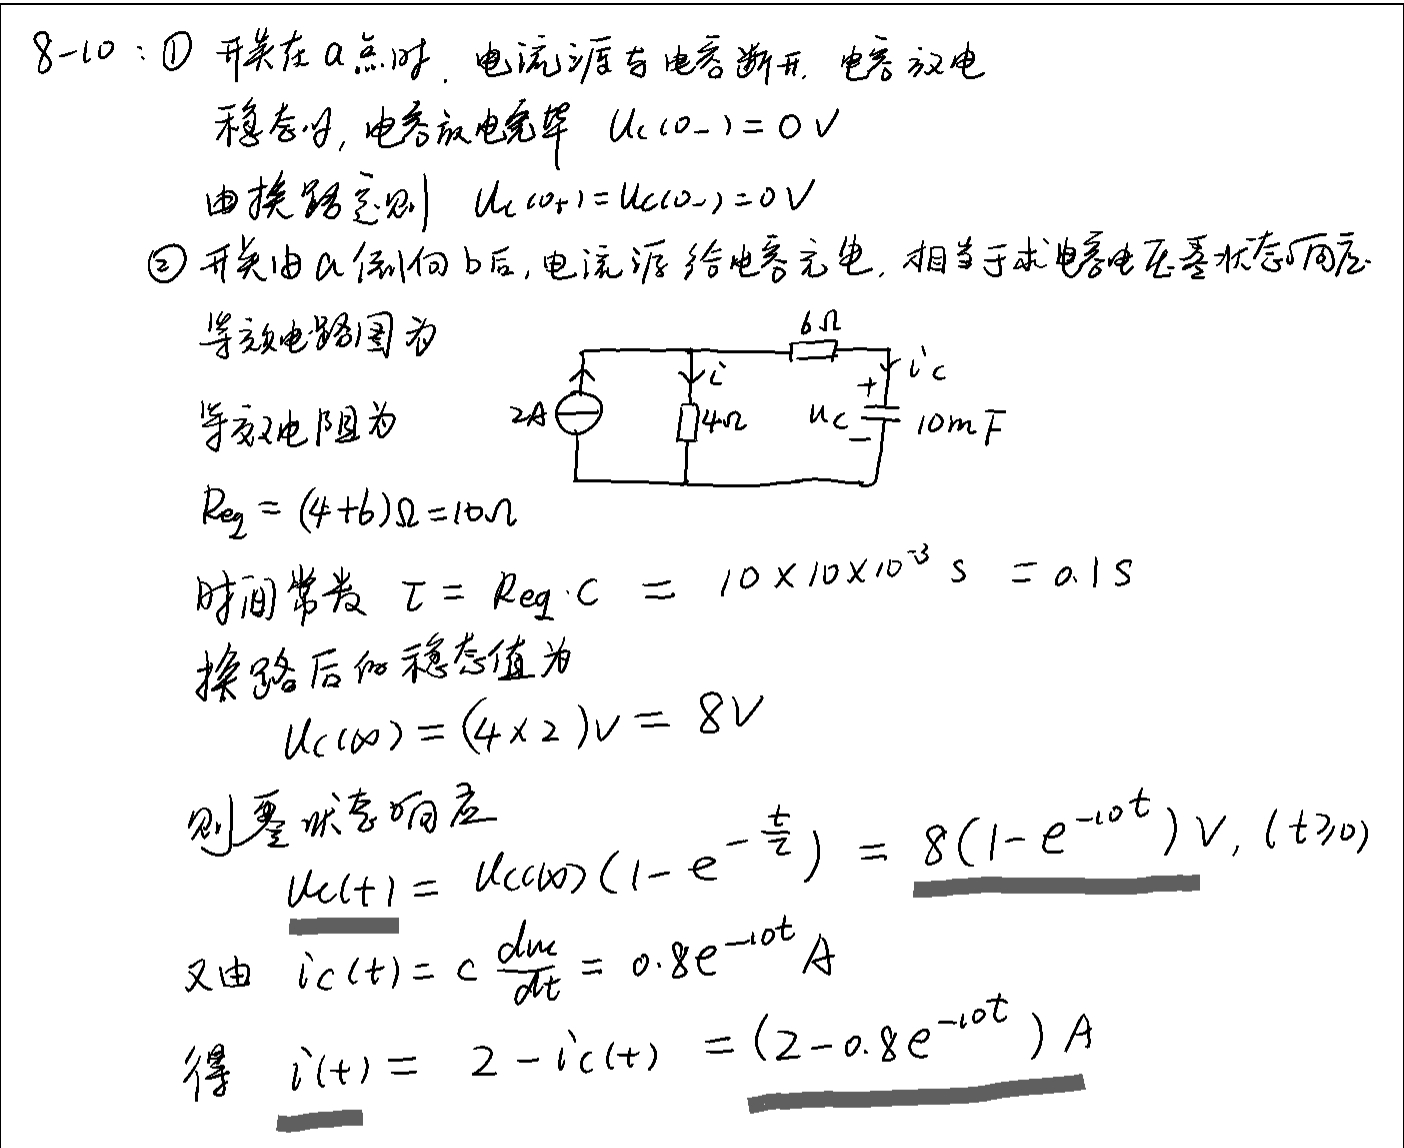 8-10：① 开关在a点时，电流源与电容断开，电容放电
稳态时，电容放电完毕 Uc(0-)=0V
由换路定则 Uc(0+)=Uc(0-)=0V
② 开关由a倒向b后，电流源给电容充电，相当于求电容电压零状态响应
等效电路图为
6Ω
2A
i
4Ω
+
uc
-
ic
10mF
等效电阻为
Req = (4+6)Ω=10Ω
时间常数 τ = Req·C = 10×10×10⁻³ s = 0.1s
换路后的稳态值为
Uc(∞) = (4×2)V = 8V
则零状态响应
Uc(t) = Uc(∞)(1-e^{-t/τ}) = 8(1-e^{-10t})V, (t≥0)
又由 ic(t) = c duc/dt = 0.8e^{-10t} A
得 i(t) = 2-ic(t) = (2-0.8e^{-10t}) A